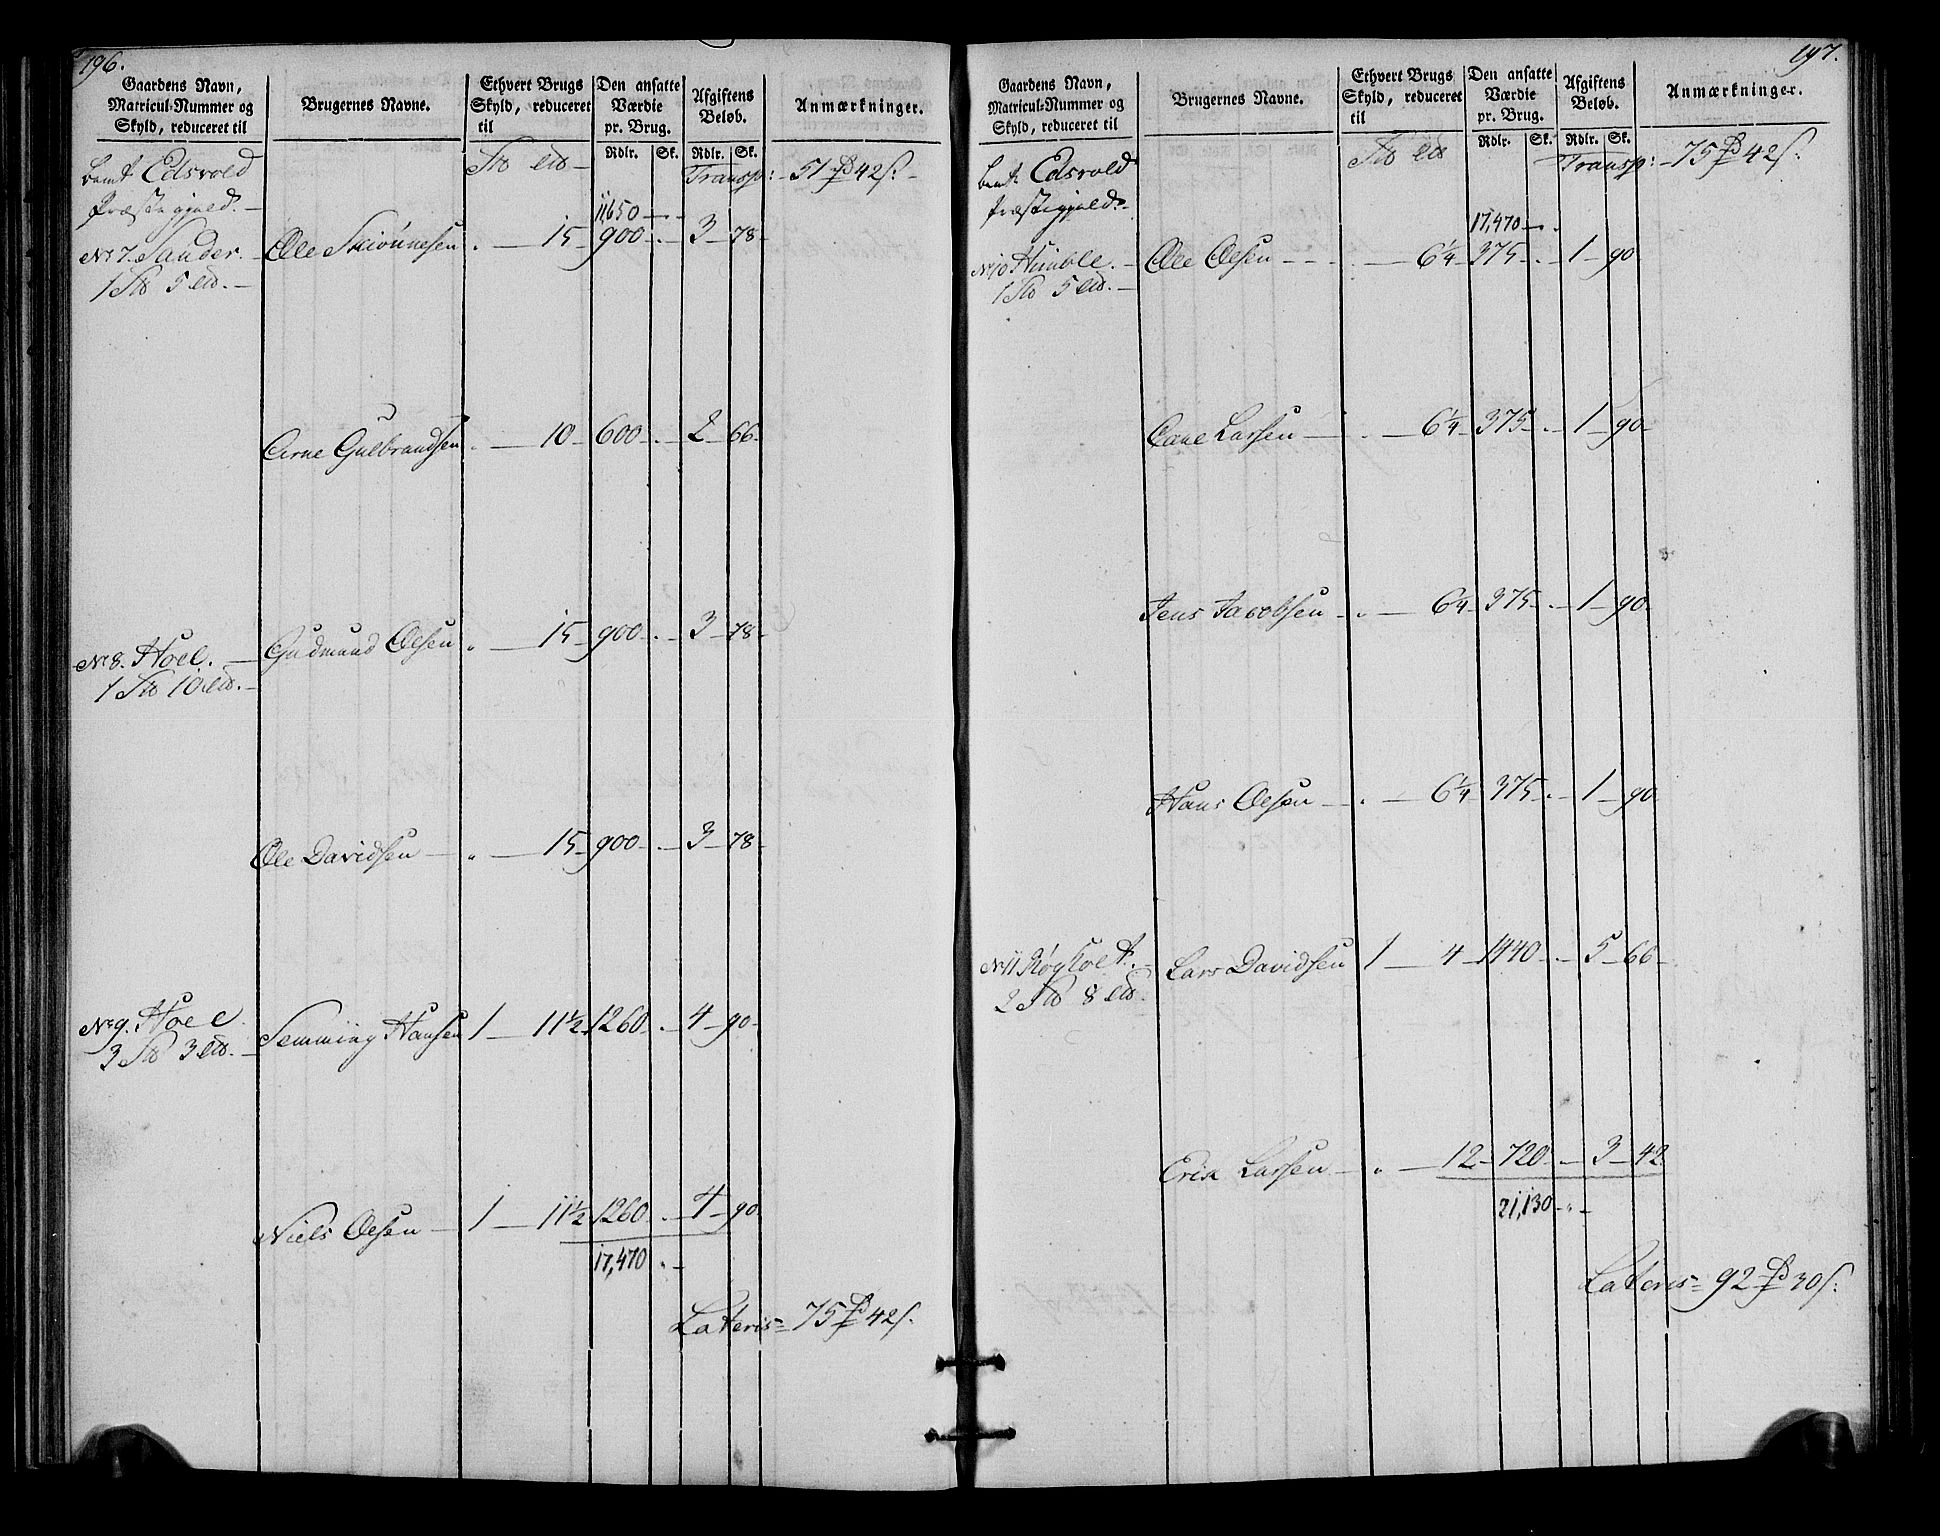 196.
Gaardens Navn, Matricul-Nummer og Skyld, reduceret til
Brugernes Navne.
Ethvert Brugs Skyld, reduceret til
Den ansatte Værdie pr. Brug.
Afgiftens Beløb.
Anmærkninger.
Rdlr. Sk. Rdlr. Sk.
Edsvold Transp: 51 42
Præstegjeld.
11,650
No 7. Sander. Ole Skiønnesen " 15 900 3 78
1 5
Arne Gulbrandsen " 10 600 2 66
No 8. Hoel. Gudmund Olsen " 15 900 3 78
1 10
Ole Davidsen " 15 900 3 78
No 9. Hoel Semming Hansen 1 11½ 1260 4 90
3 3
Niels Olsen 1 11½ 1260 4 90
17,470
Lateris 75 42
197.
Gaardens Navn, Matricul-Nummer og Skyld, reduceret til
Brugernes Navne.
Ethvert Brugs Skyld, reduceret til
Den ansatte Værdie pr. Brug.
Afgiftens Beløb.
Anmærkninger.
Rdlr. Sk. Rdlr. Sk.
Edsvold Transp: 75 42
Præstegjeld.
17,470
No 10 Himble. Ole Olsen 6¼ 375 1 90
1 5
Larsen 6¼ 375 1 90
Jens Jacobsen " 6¼ 375 1 90
Hans Olsen " 6¼ 375 1 90
No 11 Lars Davidsen 1 4 1440 5 66
2 8
Erik Larsen " 12 720 3 42
21,130
Lateris 92 30